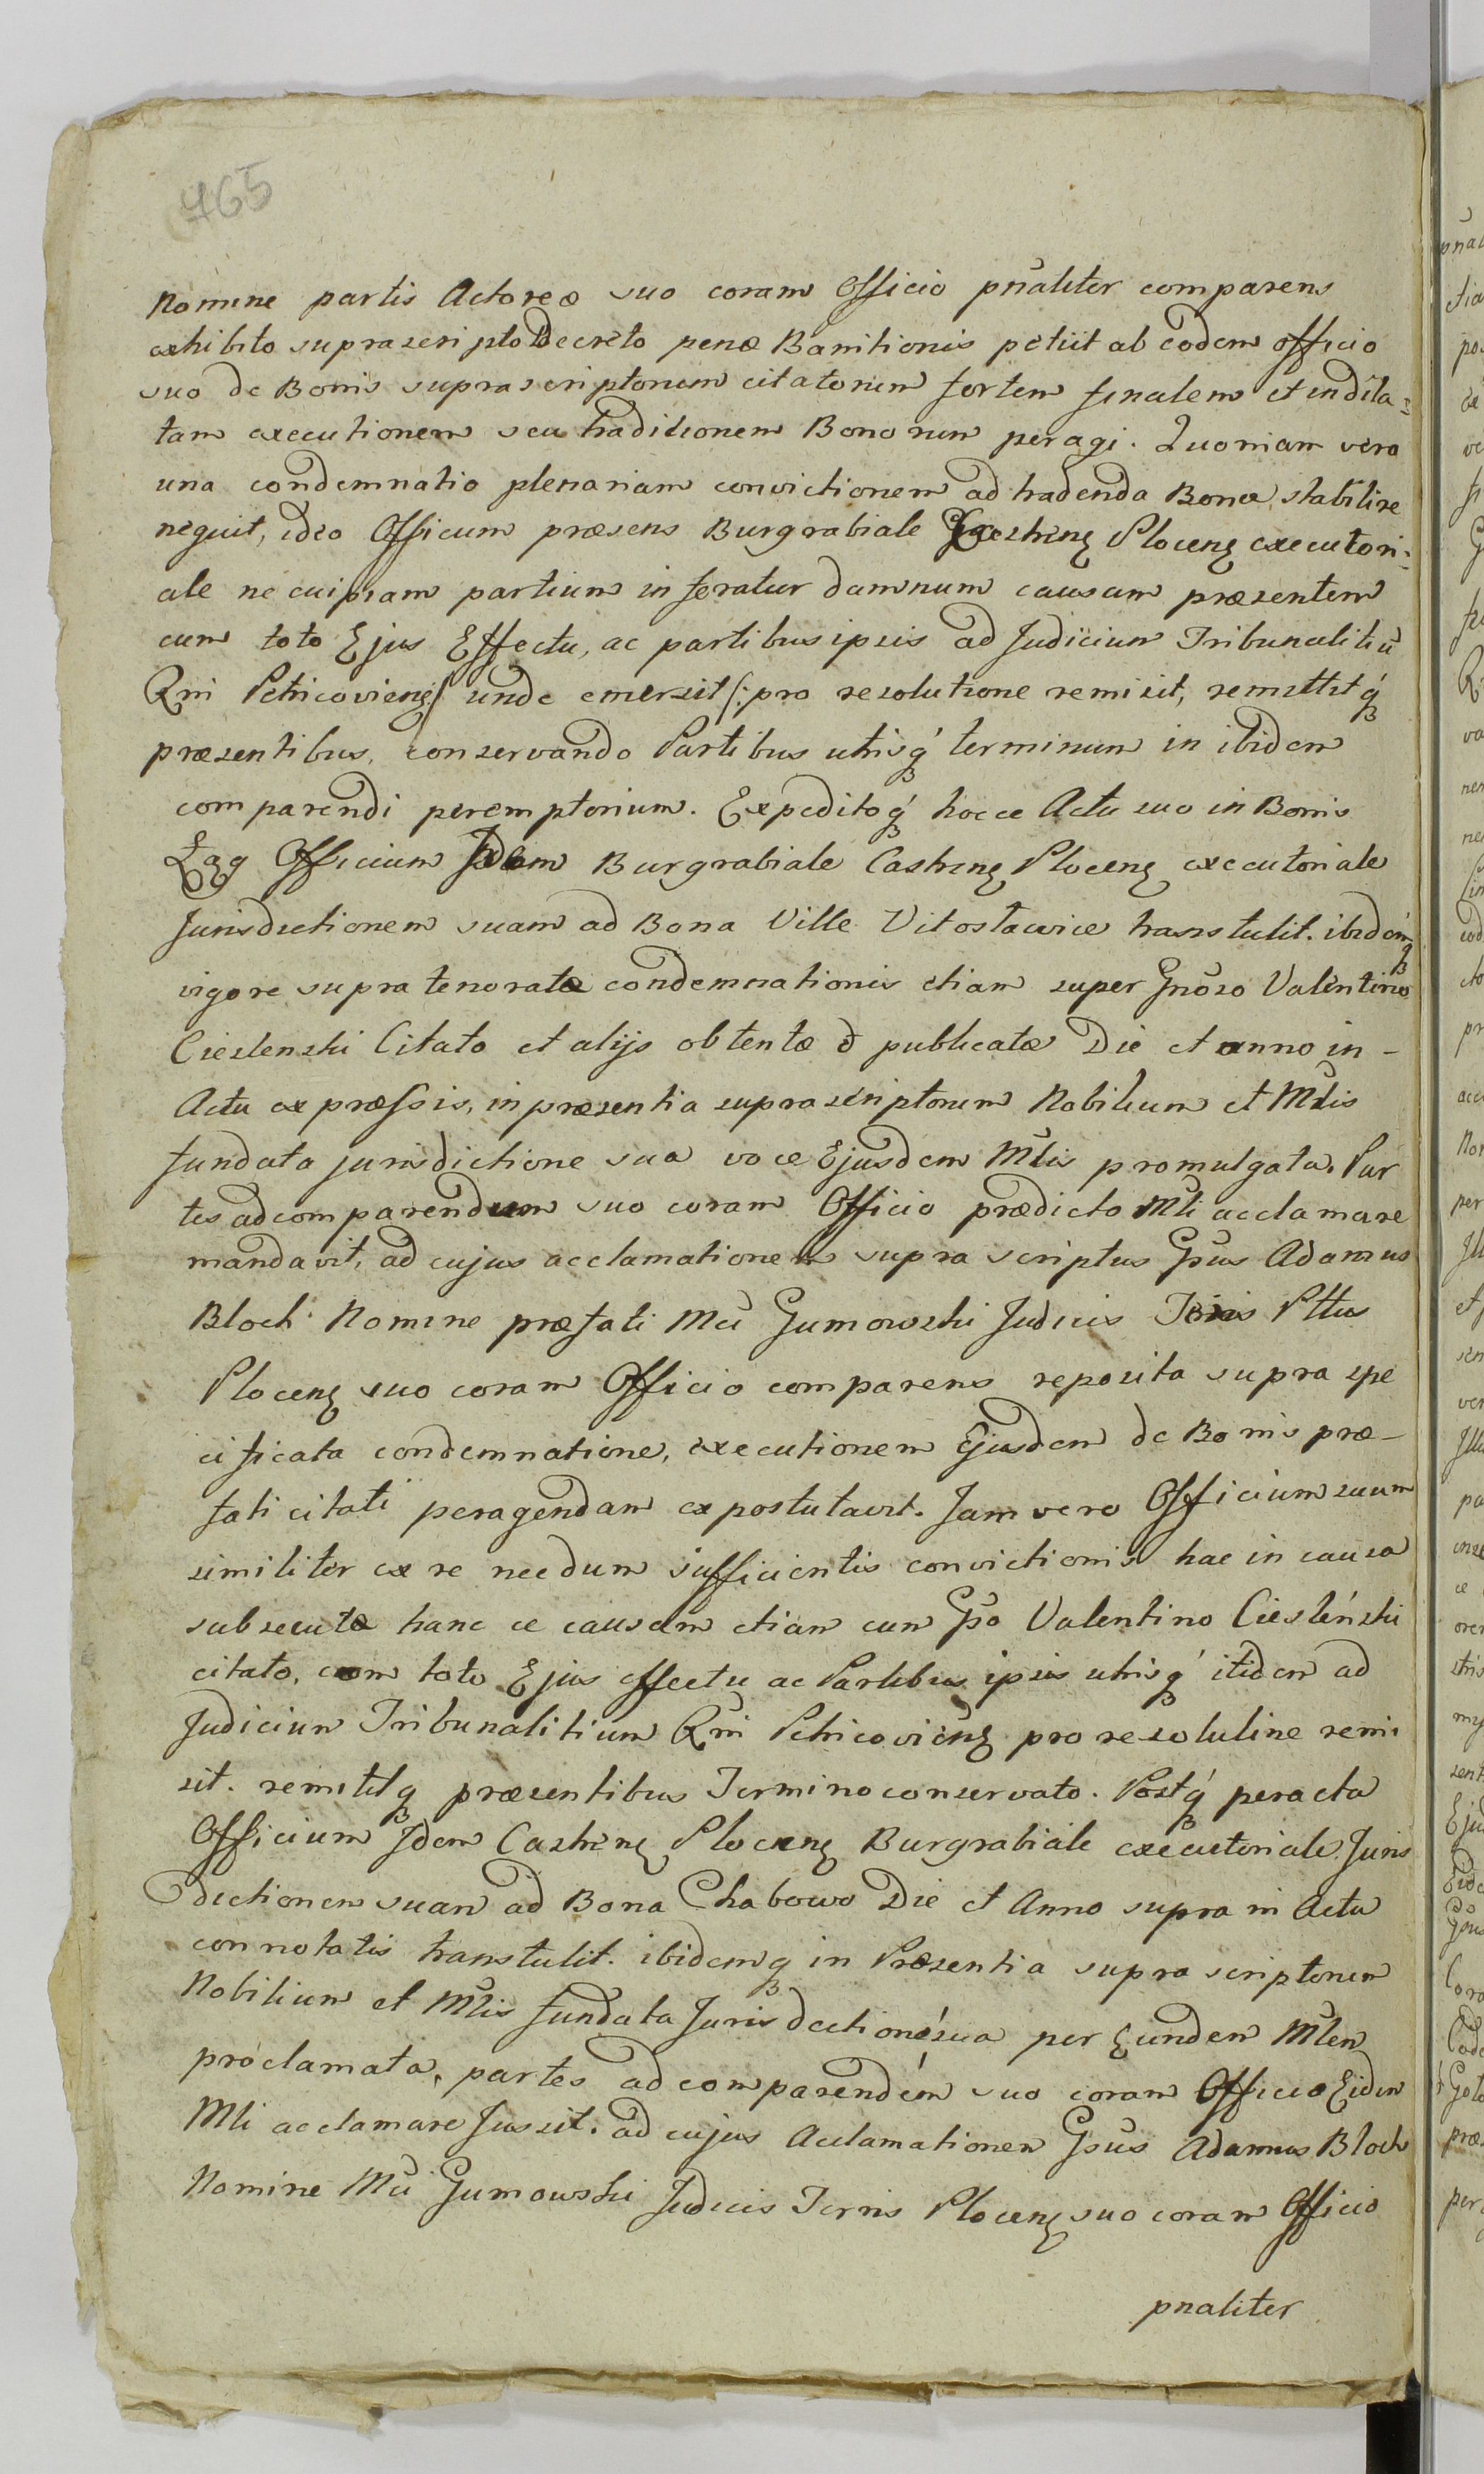 765
Nomine partis Actoreæ suo coram Officio pnaliter comparens
exhibito suprascripto Decreto penæ Banitionis petiit ab eodem officio
suo de Bonis suprascriptorum citatorum fortem finalem et indila=
tam executionem seu traditionem Bonorum peragi. Quoniam vero
una condemnatio plenariam convictionem ad tradenda Bona stabilire
nequit, ideo Officium præsens Burgrabiale Castrenę Plocenę executori=
ale ne cuipiam partium inferatur damnum causam præsentem
cum toto Ejus Effectu, ac partibus ipsis ad Judicium Tribunalitiu
Rni Petricovienę unde emersit /: pro resolutione remisit, remittitq́
præsentibus, conservando Partibus utrisq́ terminum in ibidem
comparendi peremptorium. Expeditoq́ hocce Actu suo in Bonis
Łąg Officium Idem Burgrabiale Castrenę Plocenę executoriale
Jurisdictionem suam ad Bona Ville Vitosławice transtulit. ibidemq
vigore supra tenoratæ condemnationis etiam super Gnoso Valentino
Cieslenski Citato et alijs obtentæ & publicatæ Die et anno in-
Actu expressis, in præsentia suprascriptorum Nobilium et Mtlis
fundata jurisdictione sua voce Ejusdem Mtlis promulgata, Par
tes ad comparendum suo coram Officio prædicto Mtli acclamare
mandavit, ad cujus acclamationem supra scriptus Gsus Adamus
Bloch Nomine præfati Mci Gumowski Judicis Tris Pttus
Plocenę suo coram Officio comparens reposita supra spe
cificata condemnatione, executionem Ejusdem de Bonis præ-
fati citati peragendam expostulavit. Jam vero Officium suum
similiter ex re necdum sufficientis convictionis hac in causa
subsecutæ hanc ce causam etiam cum Gso Valentino Cieslénski
citato, cum toto Ejus effectu ac Partibus ipsis utrisq́ itidem ad
Judicium Tribunalitium Rni Petricovienę pro resolutine remi
sit. remittitq præsentibus Termino conservato. Postq́ peracta
Officium Idem Castrenę Plocenę Burgrabiale executoriale Juris
dictionem suam ad Bona Chabowo Die et Anno supra in Actu
connotatis transtulit. ibidemq in Præsentia supra scriptorum
Nobilium et Mtlis fundata Jurisdictione sua per Eundem Mtlem
proclamata, partes ad comparendum suo coram Officio Eidem
Mtli acclamare Jussit. ad cujus Acclamationem Gsus Adamus Bloch
Nomine Mci Gumowski Judicis Terris Plocenę suo coram Officio
pnaliter